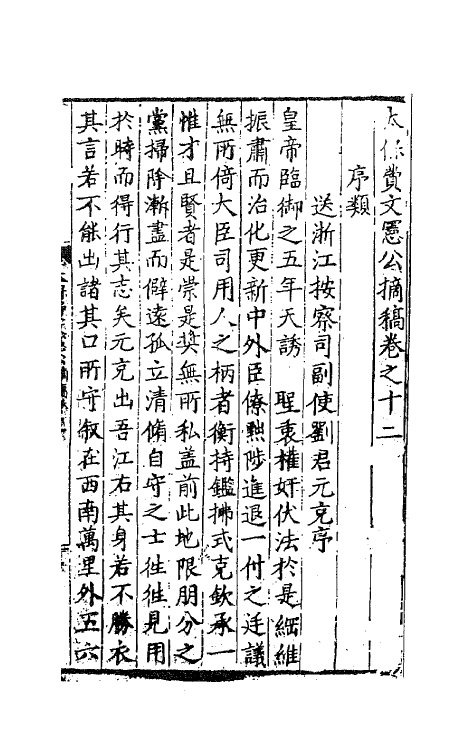 太保費文憲公摘稿卷之十二
序類
送浙江按察司副使劉君元充序
皇帝臨御之五年天誘 聖衷權奸伏法於是綱維
振肅而治化更新中外臣僚黜陟進退一付之廷議
無所倚大臣司用人之柄者衡持鑑拂式克欽承一
惟才且賢者是崇是奬無所私盖前此地限朋分之
黨掃除漸盡而僻遠孤立清脩自守之士徃徃見用
於時而得行其志矣元充出吾江右其身若不勝衣
其言若不能出諸其口所守叙在西南萬里外五六